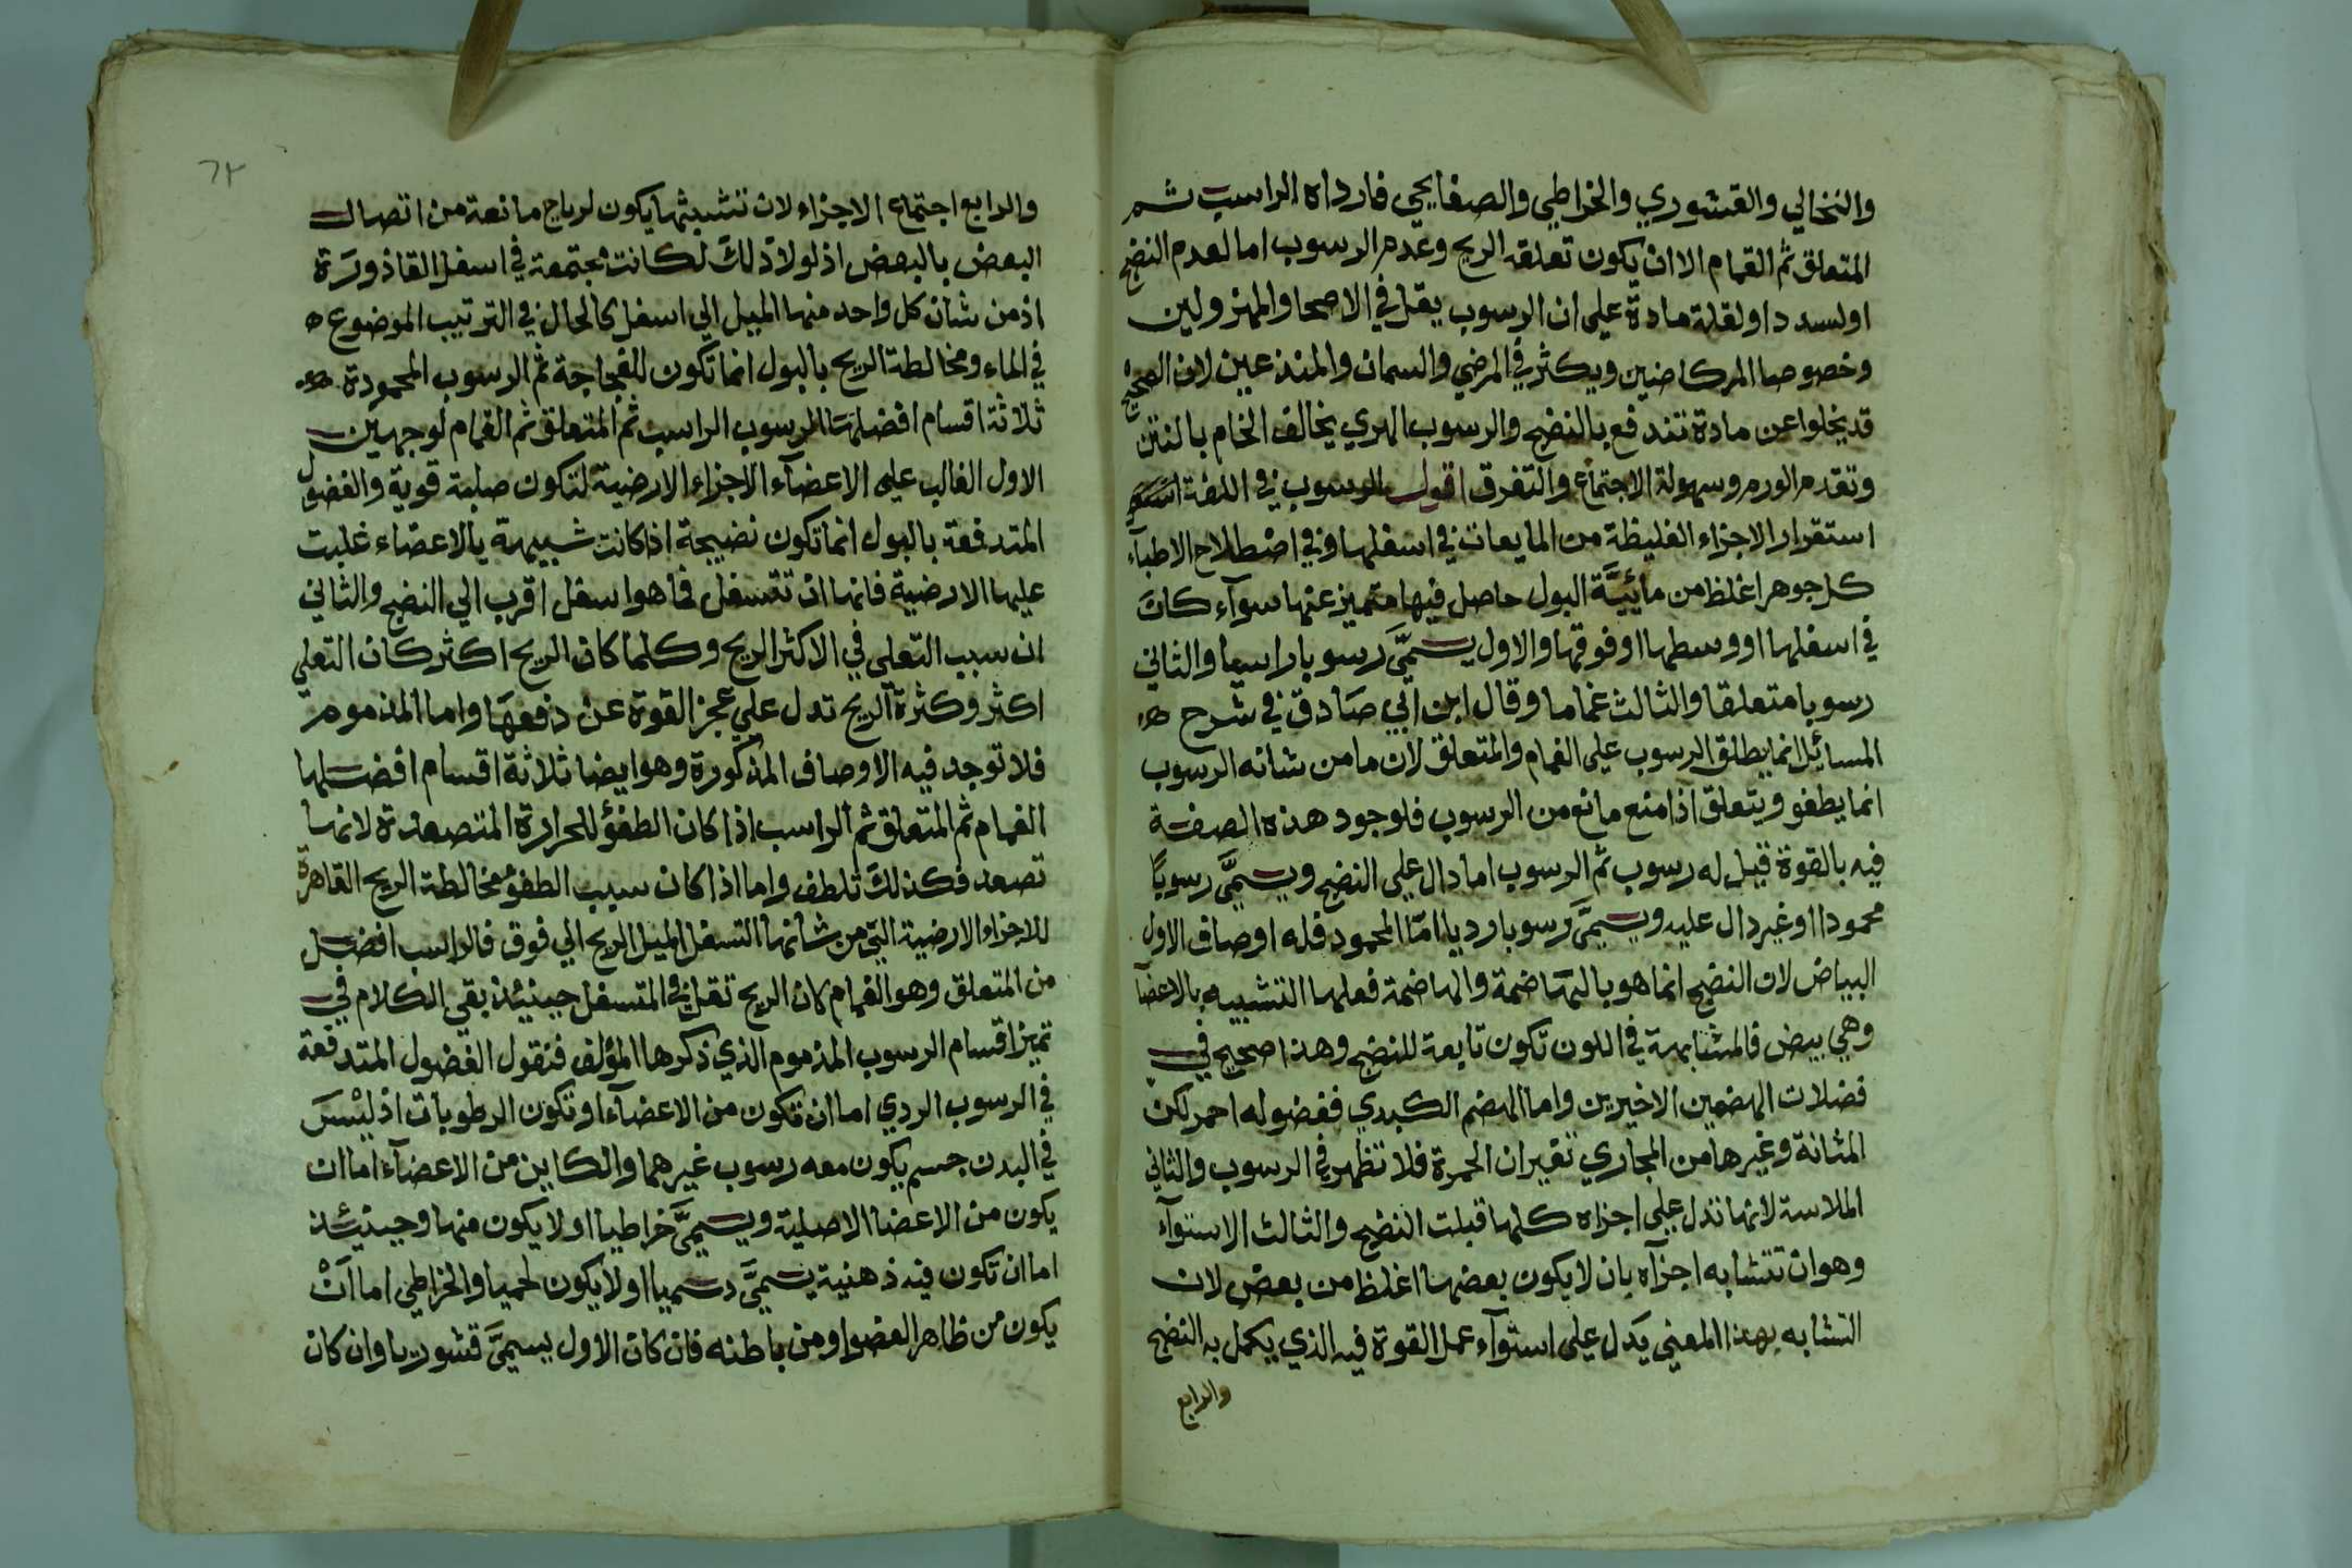 والنخالي والقشوري والخراطي والصفايحي فارداه الراسب ثم
المتعلق ثم الغمام الا ان يكون تعلقه الريح وعدم الرسوب اما لعدم النضج
او لسدد او لقلة مادة علي ان الرسوب يقل في الاصحا والمهزولين
وخصوصا المركاضين ويكثر في المرضي والسمان والمتدعين لان الصحيح
قد يخلوا عن مادة تندفع بالنضج والرسوب المري يخالف الخام بالنتن
وتقدم الورم وسهولة الاجتماع والتفرق اقول الرسوب في اللغة اسم
استقرار الاجزاء الغليظة من المايعات في اسفلها وفي اصطلاح الاطباء
كل جوهر اغلظ من مائيَّة البول حاصل فيها متميز عنها سوآء كان
في اسفلها او وسطها او فوقها والاول يسمَّى رسوبا راسبا والثاني
رسوبا متعلقا والثالث غماما وقال ابن ابي صادق في شرح
المسائل انما يطلق الرسوب علي الغمام والمتعلق لان ما من شانه الرسوب
انما يطفو ويتعلق اذا منع مانع من الرسوب فلوجود هذه الصفة
فيه بالقوة قيل له رسوب ثم الرسوب اما دال علي النضج ويسمَّى رسوبًا
محمودا او غير دال عليه ويسمَّى رسوبا رديا امّا المحمود فله اوصاف الاول
البياض لان النضج انما هو بالهاضمة والهاضمة فعلها التشبيه بالاعضآ
وهي بيض فالمشابهة في اللون تكون تابعة للنضج وهذا صحيح في
فضلات الهضمين الاخيرين واما الهضم الكبدي ففضوله احمر لكن
المثانة وغيرها من المجاري تغيران الحمرة فلا تظهر في الرسوب والثاني
الملاسة لانها تدل علي اجزاه كلها قبلت النضج والثالث الاستوآء
وهو ان تتشابه اجزآه بان لا يكون بعضها اغلظ من بعض لان
التشابه بهذا المعني يدل علي استوآء عمل القوة فيه الذي يكمل به النضج
والرابع
٦٢
والرابع اجتماع الاجزاء لان تشبثها يكون لرياح مانعة من اتصال
البعض بالبعض اذ لولا ذلك لكانت مجتمعة في اسفل القاذورة
اذ من شان كل واحد منها الميل الي اسفل كالحال في الترتيب الموضوع
في الماء ومخالطة الريح بالبول انما تكون للفجاجة ثم الرسوب المحمودة
ثلاثة اقسام افضلها الرسوب الراسب ثم المتعلق ثم الغمام لوجهين
الاول الغالب علي الاعضآء الاجزاء الارضية لتكون صلبة قوية والفضول
المتدفعة بالبول انما تكون نضيجة اذا كانت شبيهة بالاعضاء غلبت
عليها الارضية فانها ان تتسفل فما هو اسفل اقرب الي النضج والثاني
ان سبب التعلي في الاكثر الريح وكلما كان الريح اكثر كان التعلي
اكثر وكثرة الريح تدل علي عجز القوة عن دفعها واما المذموم
فلا توجد فيه الاوصاف المذكورة وهو ايضا ثلاثة اقسام افضلها
الغمام ثم المتعلق ثم الراسب اذا كان الطفؤ للحرارة المتصعدة لانها
تصعد فكذلك تلطف واما اذا كان سبب الطفؤ مخالطة الريح القاهرة
للاجزاء الارضية التي من شانها التسفل الميل الريح الي فوق فالراسب افضل
من المتعلق وهو الغمام كان الريح تقل في المتسفل حينئذ بقي الكلام في
تميز اقسام الرسوب المذموم الذي ذكرها المؤلف فنقول الفضول المتدفعة
في الرسوب الردي اما ان تكون من الاعضآء او تكون الرطوبات اذ ليْسَ
في البدن جسم يكون معه رسوب غيرهما والكاين من الاعضآء اما ان
يكون من الاعضا الاصلية ويسمَّى خراطيا او لا يكون منها وحينئذ
اما ان تكون فيه ذهنية يسمَّى دسميا او لا يكون لحميا والخراطي اما اَنْ
يكون من ظاهر العضو او من باطنه فان كان الاول يسمَّى قشوريا وان كان